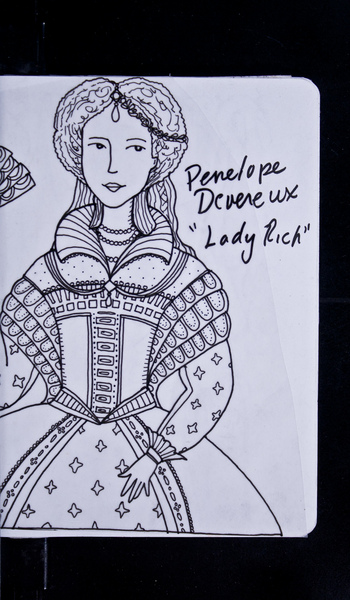 Penelope
Devereux
"Lady Rich"